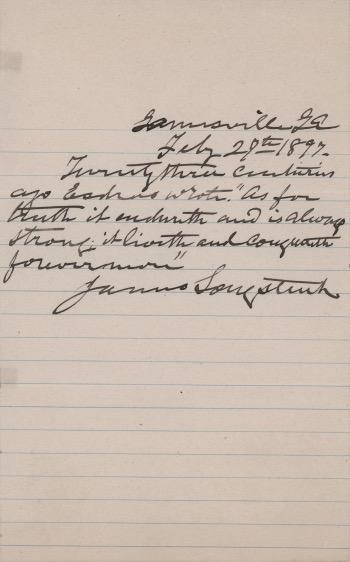 Gainesville, Ga
Feby 27th 1897.
Twenty three centuries
ago Esdras wrote. "As for
truth it endureth and is always
strong; it liveth and conquereth
forevermore"
James Longstreet